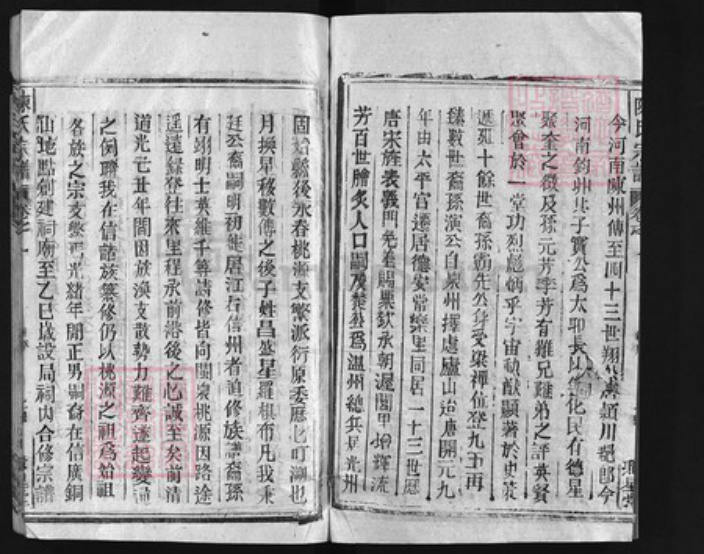 今河南陳州傳至四十三世翔公遷潁川郡卽今
河南鈞州其子實公爲太邱長以善化民有德星
聚奎之徵及孫元芳季芳有難兄難弟之評英賢
聚會於一堂功烈彪炳乎宇宙勛猷顯著於史冊
遞苑十餘世裔孫霸先公身受梁禪位登九五再
臻數世裔孫演公自泉州擇處廬山迨唐開元九
年由太平宫遷居德安常樂里同居一十三世歷
唐宋旌表義門免着賜粟欽承朝渥閥甲增輝流
芳百世膾炙人口嗣茂楚公爲溫州總兵居光州
陳氏宗譜
固始縣後永春桃源支繁派衍原委歷匕叮溯也
月換星移數傳之後子姓昌盛星羅棋布凡我秉
廷公裔嗣明初徙居江右信州者迫修族譜裔孫
有翊明士英維千等譜修皆向閩泉桃源因路途
遥遠錄登往來里程承前啓後之心誠至矣前清
道光七丑年間因族渙支散勢力難齊遂起變通
之例聯我在信諸族纂修仍以桃源之祖爲始祖
各族之宗支繫焉光緒年間正男嗣裔在信廣銅
山地點創建祠廟至乙巳歲設局祠内合修宗譜
陳氏宗譜